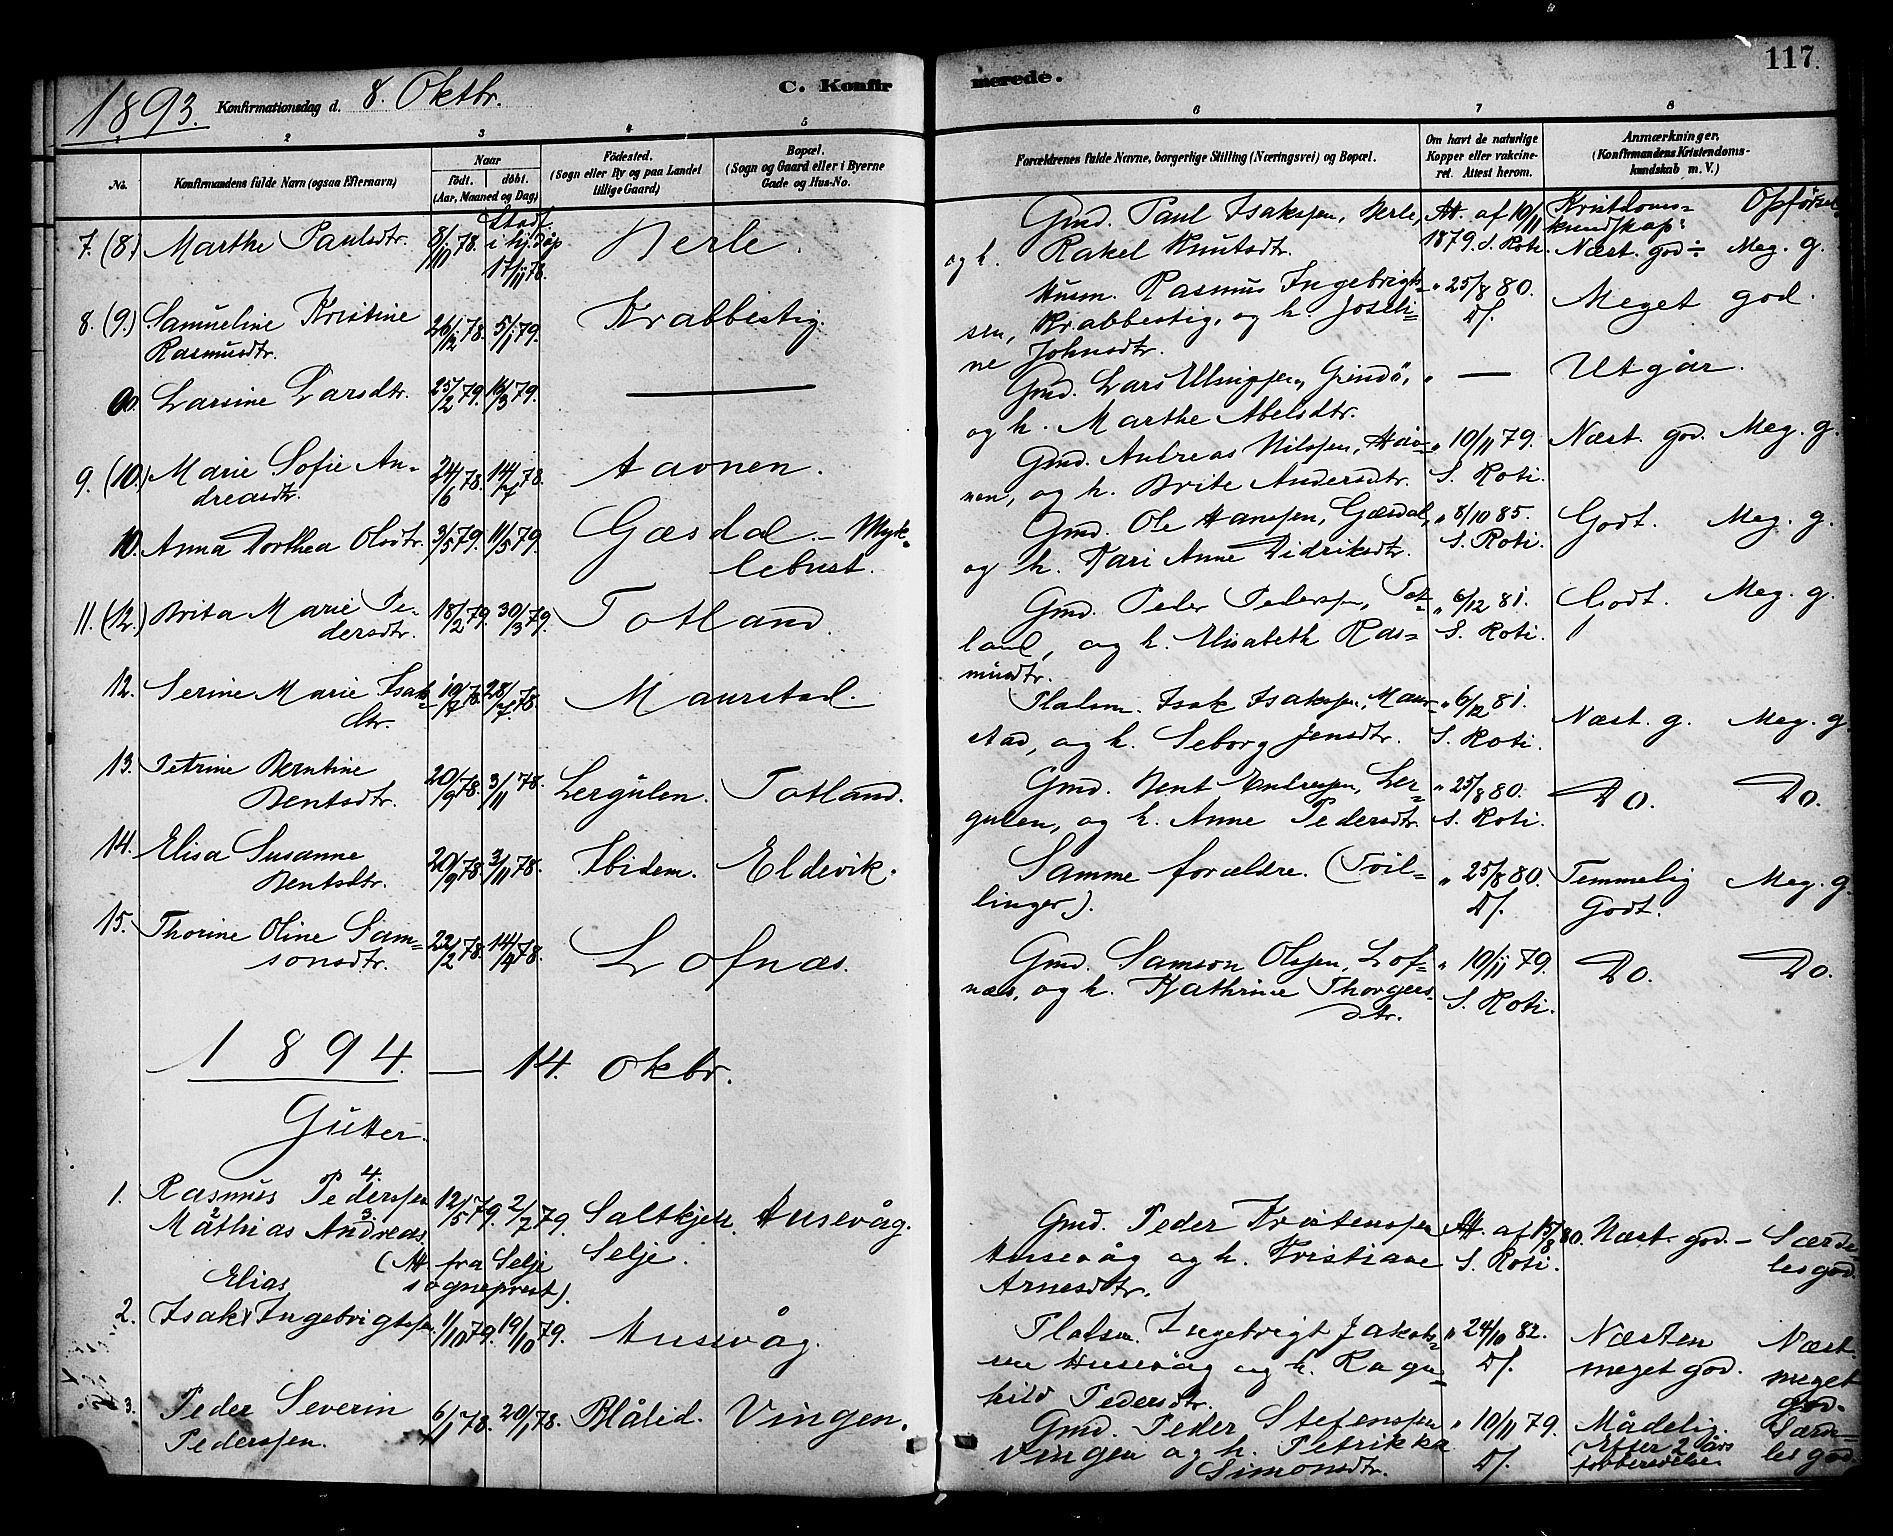 117.
1893. Konfirmationsdag d. 8. Oktbr. C. Konfirmerede.
1 2 3 4 5 6 7 8
No. Konfirmandens fulde Navn (ogsaa Efternavn)
Naar
født. døbt.
(Aar, Maaned og Dag)
Fødested.
(Sogn eller By og paa Landet
tillige Gaard)
Bopæl.
(Sogn og Gaard eller i Byerne
Gade og Hus-No.
Forældrenes fulde Navne, borgerlige Stilling (Næringsvei) og Bopæl.
Om havt de naturlige
Kopper eller vakcine-
ret. Attest herom.
Anmærkninger,
(Konfirmandens Kristendoms-
kundskab m. V.)
Kristdoms-
kundskap: Opførsel
7. (8.) Marthe Paulsdtr. 8/11 78. Stadf. i kj. Døp 17/11 78. Nerle.
Gmd. Paul Isaksen, Nerle,
og h. Rakel Knutsdtr.
Att. af 10/11
1879. S. Roti. Næst. god ÷ Meg. g.
8. (9.) Samueline Kristine
Rasmusdtr. 26/12 78. 5/1 79. Krabbestig.
Husm. Rasmus Ingebrigt-
sen, Krabbestig, og h. Joseli-
ne Johnsdtr.
" 25/8 80.
Df. Meget god.
Larsine Larsdtr. 25/2 79. 16/3 79. —
Gmd. Lars Ulrikssen, Grindö,
og h. Marthe Abelsdtr.
" — Utgår.
9. (10.) Marie Sofie An-
dreasdtr. 24/6 78. 14/7 78. Havnen.
Gmd. Andreas Nilssen, Hav-
nen, og h. Brite Andersdtr.
" 10/11 79.
S. Roti. Næst. god. Meg. g.
10. Anna Dorthea Olsdtr. 3/5 79. 11/5 79. Gæsdal. – Myk-
lebust.
Gmd. Ole Hanssen, Gæsdal,
og h. Kari Anne Didriksdtr.
" 8/10 85.
S. Roti. Godt. Meg. g.
11. (12.) Brita Marie Pe-
dersdtr. 18/2 79. 30/3 79. Totland.
Gmd. Peder Pederssen, Tot-
land, og h. Elisabeth Ras-
musdtr.
" 6/12 81.
S. Roti. Godt. Meg. g.
12. Serine Marie Isak-
dtr. 19/7 78. 28/7 78. Maurstad.
Pladsm. Isak Isaksen, Maur-
stad, og h. Seborg Jensdtr.
" 6/12 81.
S. Roti. Næst. g. Meg. g.
13. Petrine Berntine
Bentsdtr. 20/9 78. 3/11 78. Lergulen. Totland.
Gmd. Bent Andressen, Ler-
gulen, og h. Anne Pedersdtr.
" 25/8 80.
S. Roti. Do. Do.
14. Elisa Susanne
Bentsdtr. 20/9 78. 3/11 78. Ibidem. Eldevik.
Samme forældre. (Tvil-
linger).
" 25/8 80.
Df. Temmelig
Godt. Meg. g.
15. Thorine Oline Sam-
sonsdtr. 22/2 78. 14/4 78. Lofnæs.
Gmd. Samson Olssen, Lof-
næs, og h. Kathrine Thorgers-
dtr.
" 10/11 79.
S. Roti. Do. Do.
1894. — 14. okbr.
Gutter.
1. Rasmus Pederssen 4.
2 Mathias Andreas 3.
Elias (Att fra Selje
sogneprest). 12/5 79. 2/7 79. Saltkjel, Husevåg.
Selje.
Gmd. Peder Kristenssen
Husevåg og h. Kristiane
Arnesdtr.
Att. af 17/8 80.
S. Roti. Næst. god. – Særde-
les god.
2. Isak Ingebrigtssen 1/10 79. 19/10 79. Husevåg.
Pladsm. Ingebrigt Jakob-
sen Husevåg og h. Ragn-
hild Pedersdtr.
" 24/10 82.
Df. Næsten
meget god. Næst.
meget
god.
3. Peder Severin
Pederssen. 6/1 78. 20/1 78. Blålid. Vingen.
Gmd. Peder Stefenssen
Vingen og h. Petrikka
Simonsdtr.
" 10/11 79.
Df. Mådelig.
(Efter 2 års
forberedelse. Særde-
les god.